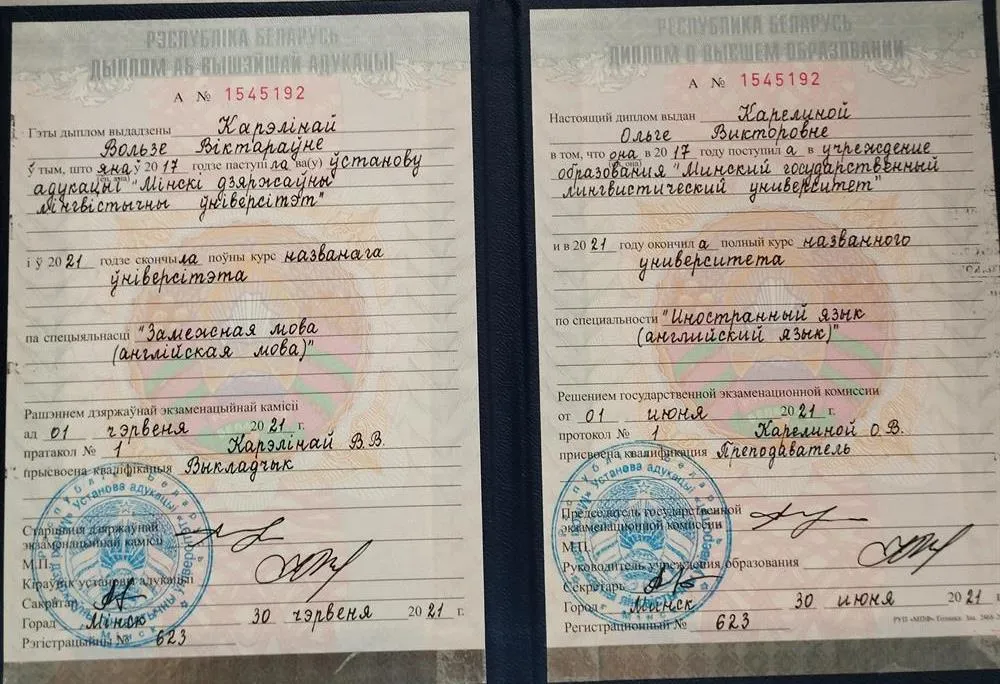 РЭСПУБЛІКА БЕЛАРУСЬ
ДЫПЛОМ АБ ВЫШЭЙШАЙ АДУКАЦЫІ
А № 1545192
Гэты дыплом выдадзены Карэлінай
Вользе Віктараўне
ў тым, што яна ў 2017 годзе паступіла ва(у) ўстанову
(ён, яна)
адукацыі "Мінскі дзяржаўны
лінгвістычны ўніверсітэт"
і ў 2021 годзе скончыла поўны курс названага
ўніверсітэта
па спецыяльнасці "Замежная мова
(англійская мова)"
Рашэннем дзяржаўнай экзаменацыйнай камісіі
ад 01 чэрвеня 2021 г.
пратакол № 1 Карэлінай В.В.
прысвоена кваліфікацыя Выкладчык
Старшыня дзяржаўнай
экзаменацыйнай камісіі
М.П.
Кіраўнік установы адукацыі
Сакратар
Горад Мінск 30 чэрвеня 2021 г.
Рэгістрацыйны № 623
РЕСПУБЛИКА БЕЛАРУСЬ
ДИПЛОМ О ВЫСШЕМ ОБРАЗОВАНИИ
А № 1545192
Настоящий диплом выдан Карелиной
Ольге Викторовне
в том, что она в 2017 году поступил а в учреждение
(он, она)
образования "Минский государственный
лингвистический университет"
и в 2021 году окончил а полный курс названного
университета
по специальности "Иностранный язык
(английский язык)"
Решением государственной экзаменационной комиссии
от 01 июня 2021 г.
протокол № 1 Карелиной О.В.
присвоена квалификация Преподаватель
Председатель государственной
экзаменационной комиссии
М.П.
Руководитель учреждения образования
Секретарь
Город Минск 30 июня 2021 г.
Регистрационный № 623